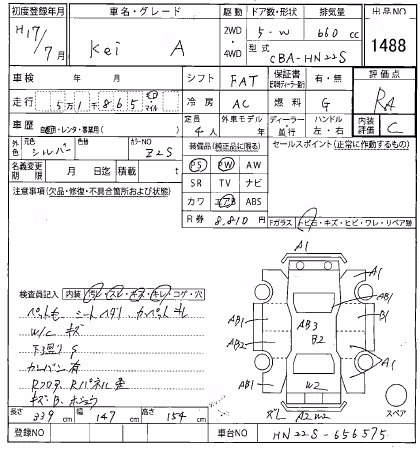 初度登録年月 車名・グレード 駆動 ドア数・形状 排気量 出品NO
H17/7月 Kei A 2WD・4WD 5-W 660 cc 1488
型式 CBA-HN22S
車検 年 月 シフト FAT 保証書 有・無 評価点
走行 51千865 km マイル 冷房 AC 燃料 G RA
車歴 自家用・レンタ・事業用( ) 定員 4人 外車モデル 年 ディーラー・並行 ハンドル 左・右 内装評価 C
外色 元色 シルバー 色替 カラーNO Z2S 装備品(純正品に限る) セールスポイント(正常に作動するもの)
名義変更期限 月 日迄 積載量 t PS PW AW
注意事項(欠品・修復・不具合箇所および状態) SR TV ナビ
カワ エアB ABS
R券 8,810円
Fガラス トビ石・キズ・ヒビ・ワレ・リペア跡
A1
A1
AB1
AB1 AB3 B1
AB2 B2
A1
AB1
W2
スペア
検査員記入 内装 汚レ・スレ・キズ・キレ・コゲ・穴
W/C キズ
下廻りS
長さ 339 cm 幅 147 cm 高さ 154 cm
登録NO 車台NO HN22S-656575